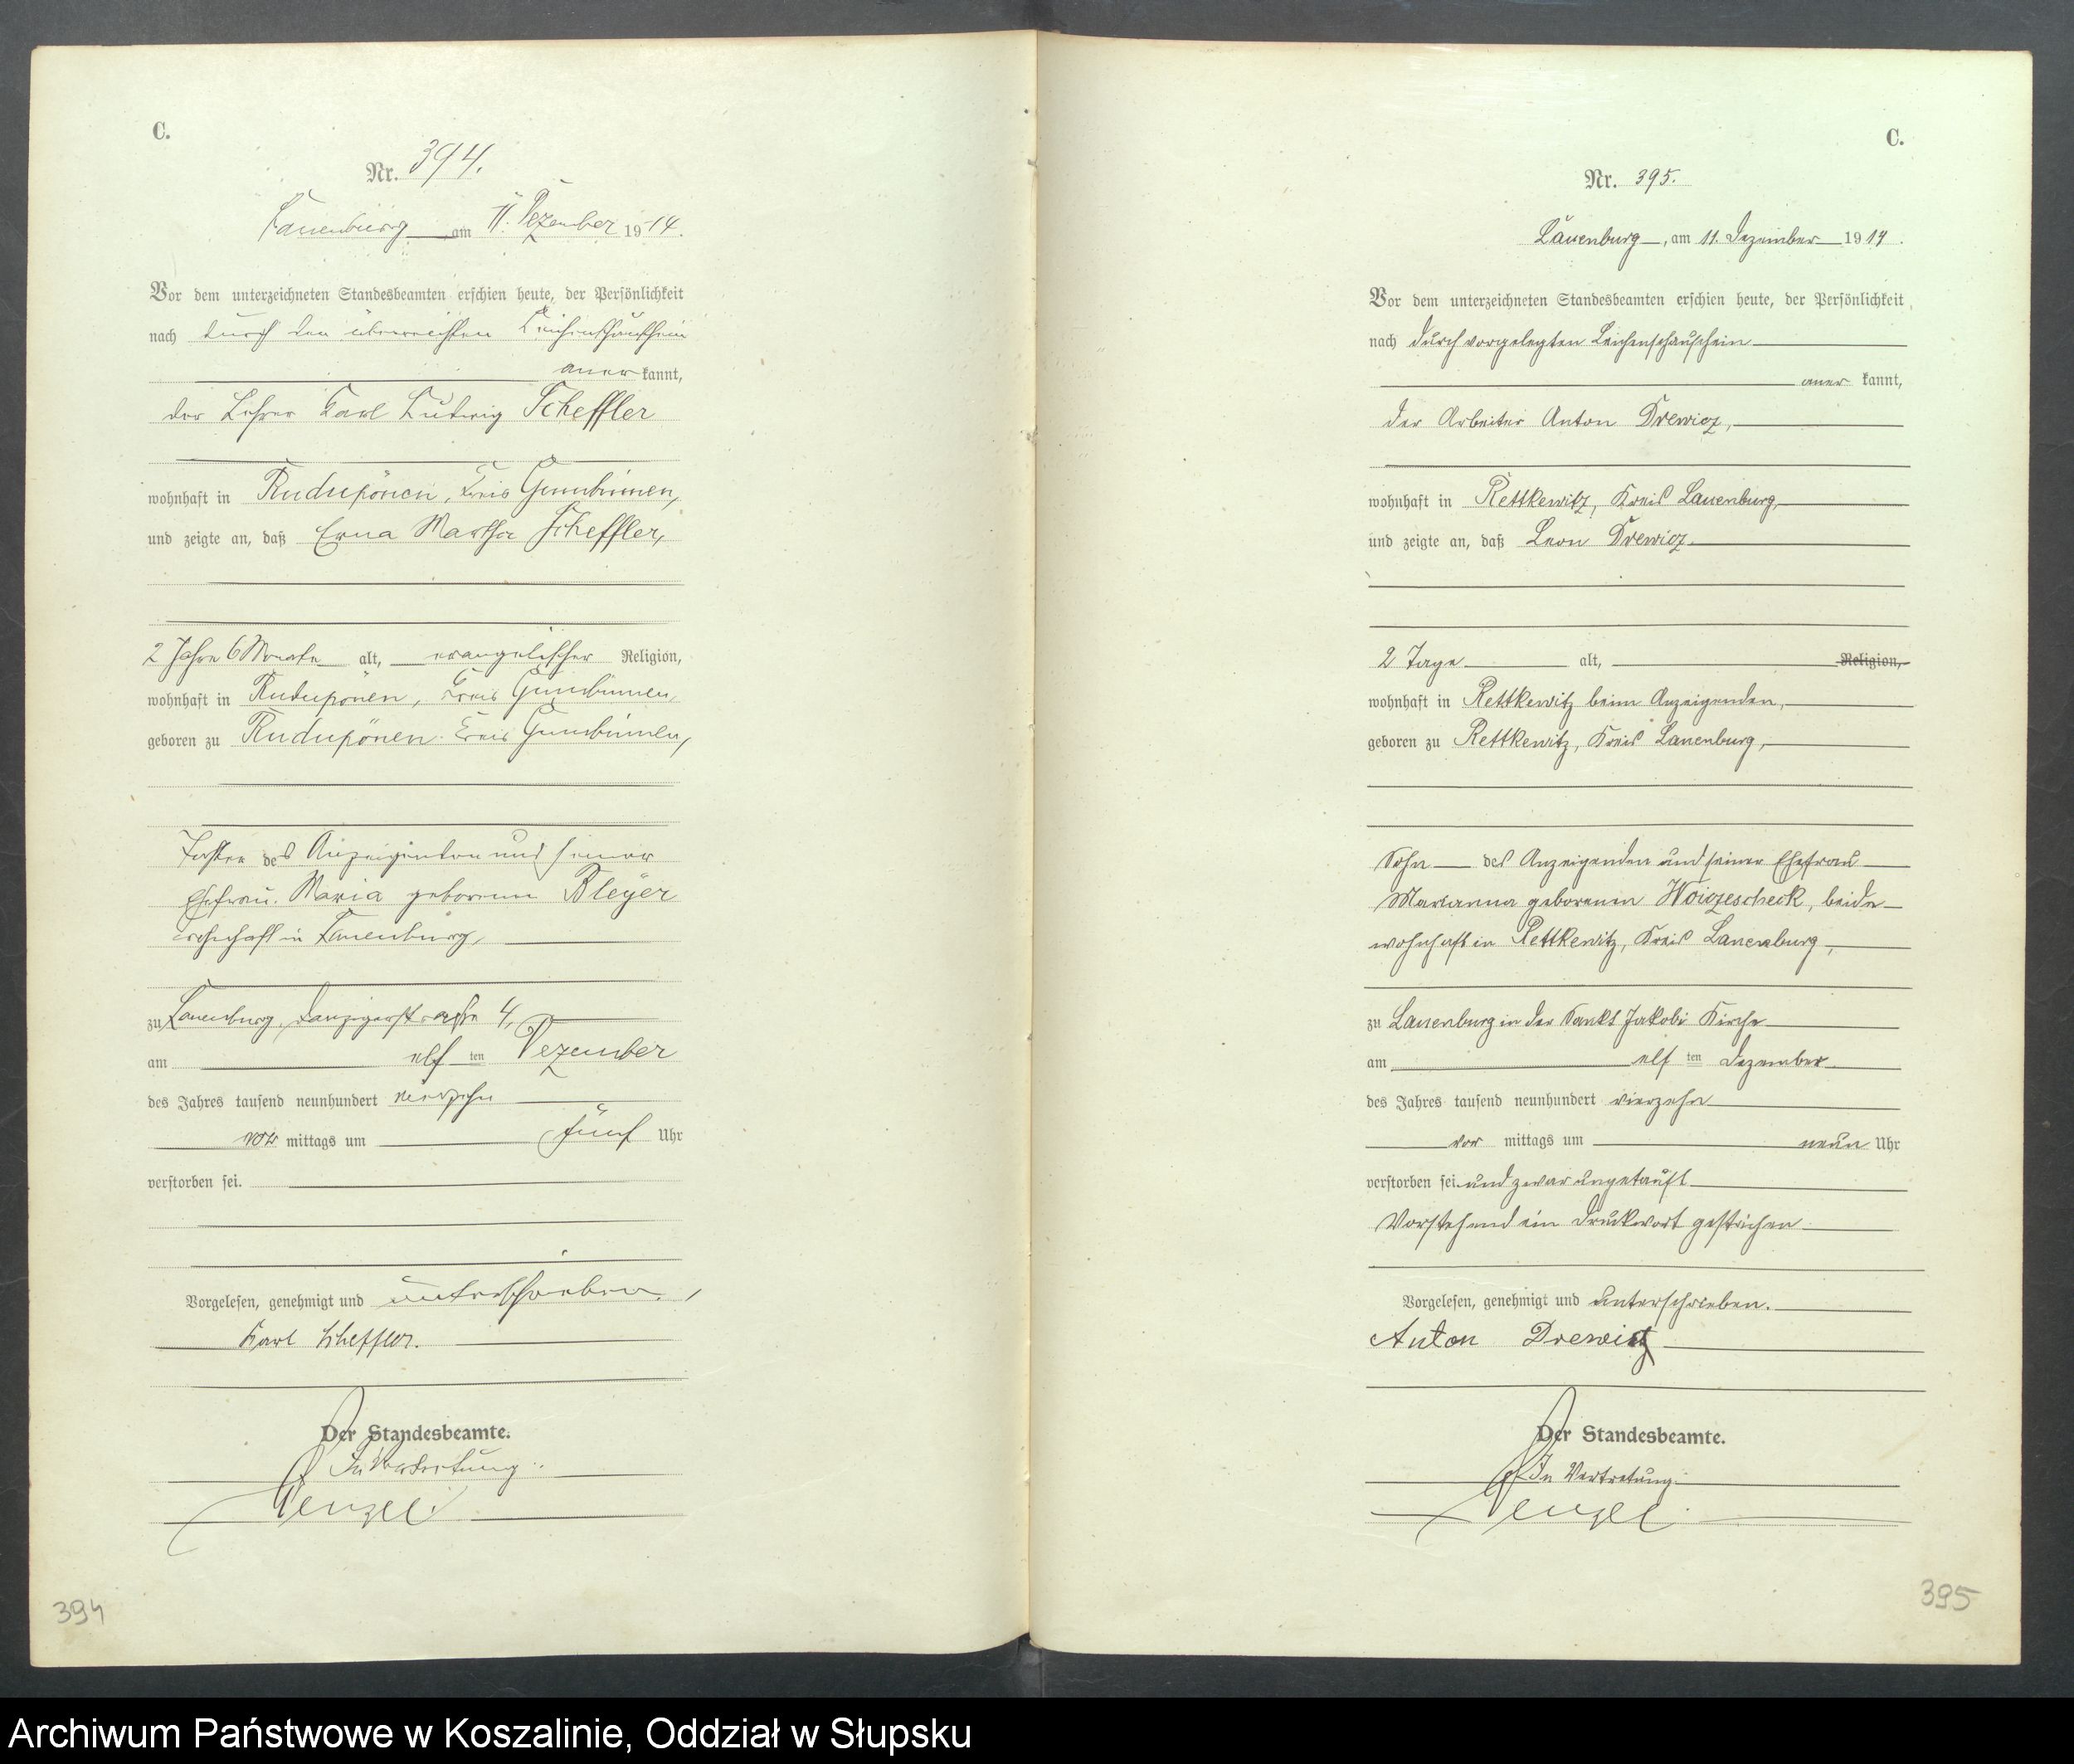 C.
Nr. 394.
Lauenburg, am 11. Dezember 1914.
Vor dem unterzeichneten Standesbeamten erschien heute, der Persönlichkeit
nach durch den überreichten Leichenschauschein
anerkannt,
der Lehrer Karl Ludwig Scheffler
wohnhaft in Ruduponen, Kreis Gumbinnen,
und zeigte an, daß Erna Martha Scheffler,
2 Jahre 6 Monate alt, evangelischer Religion,
wohnhaft in Ruduponen, Kreis Gumbinnen,
geboren zu Ruduponen Kreis Gumbinnen,
Tochter des Anzeigenden und seiner
Ehefrau Maria geborenen Bleyer
wohnhaft in Lauenburg,
zu Lauenburg, Danzigerstrasse 4,
am elften Dezember
des Jahres tausend neunhundert vierzehn
vor mittags um fünf Uhr
verstorben sei.
Vorgelesen, genehmigt und unterschrieben.
Karl Scheffler.
Der Standesbeamte.
In Vertretung:
Wenzel
394
C.
Nr. 395.
Lauenburg, am 11. Dezember 1914.
Vor dem unterzeichneten Standesbeamten erschien heute, der Persönlichkeit
nach durch vorgelegten Leichenschauschein
aner kannt,
der Arbeiter Anton Drewicz,
wohnhaft in Rettkewitz, Kreis Lauenburg,
und zeigte an, daß Leon Drewicz
2 Tage alt, Religion,
wohnhaft in Rettkewitz beim Anzeigenden,
geboren zu Rettkewitz, Kreis Lauenburg,
Sohn des Anzeigenden und seiner Ehefrau
Marianna geborenen Woiczescheck, beide
wohnhaft in Rettkewitz, Kreis Lauenburg,
zu Lauenburg in der Sankt Jakobi Kirche
am elf ten Dezember
des Jahres tausend neunhundert vierzehn
vor mittags um neun Uhr
verstorben sei und zwar ungetauft
Vorstehend ein Druckwort gestrichen
Vorgelesen, genehmigt und unterschrieben.
Anton Drewitz
Der Standesbeamte.
In Vertretung:
Wenzel
395
Archiwum Państwowe w Koszalinie, Oddział w Słupsku